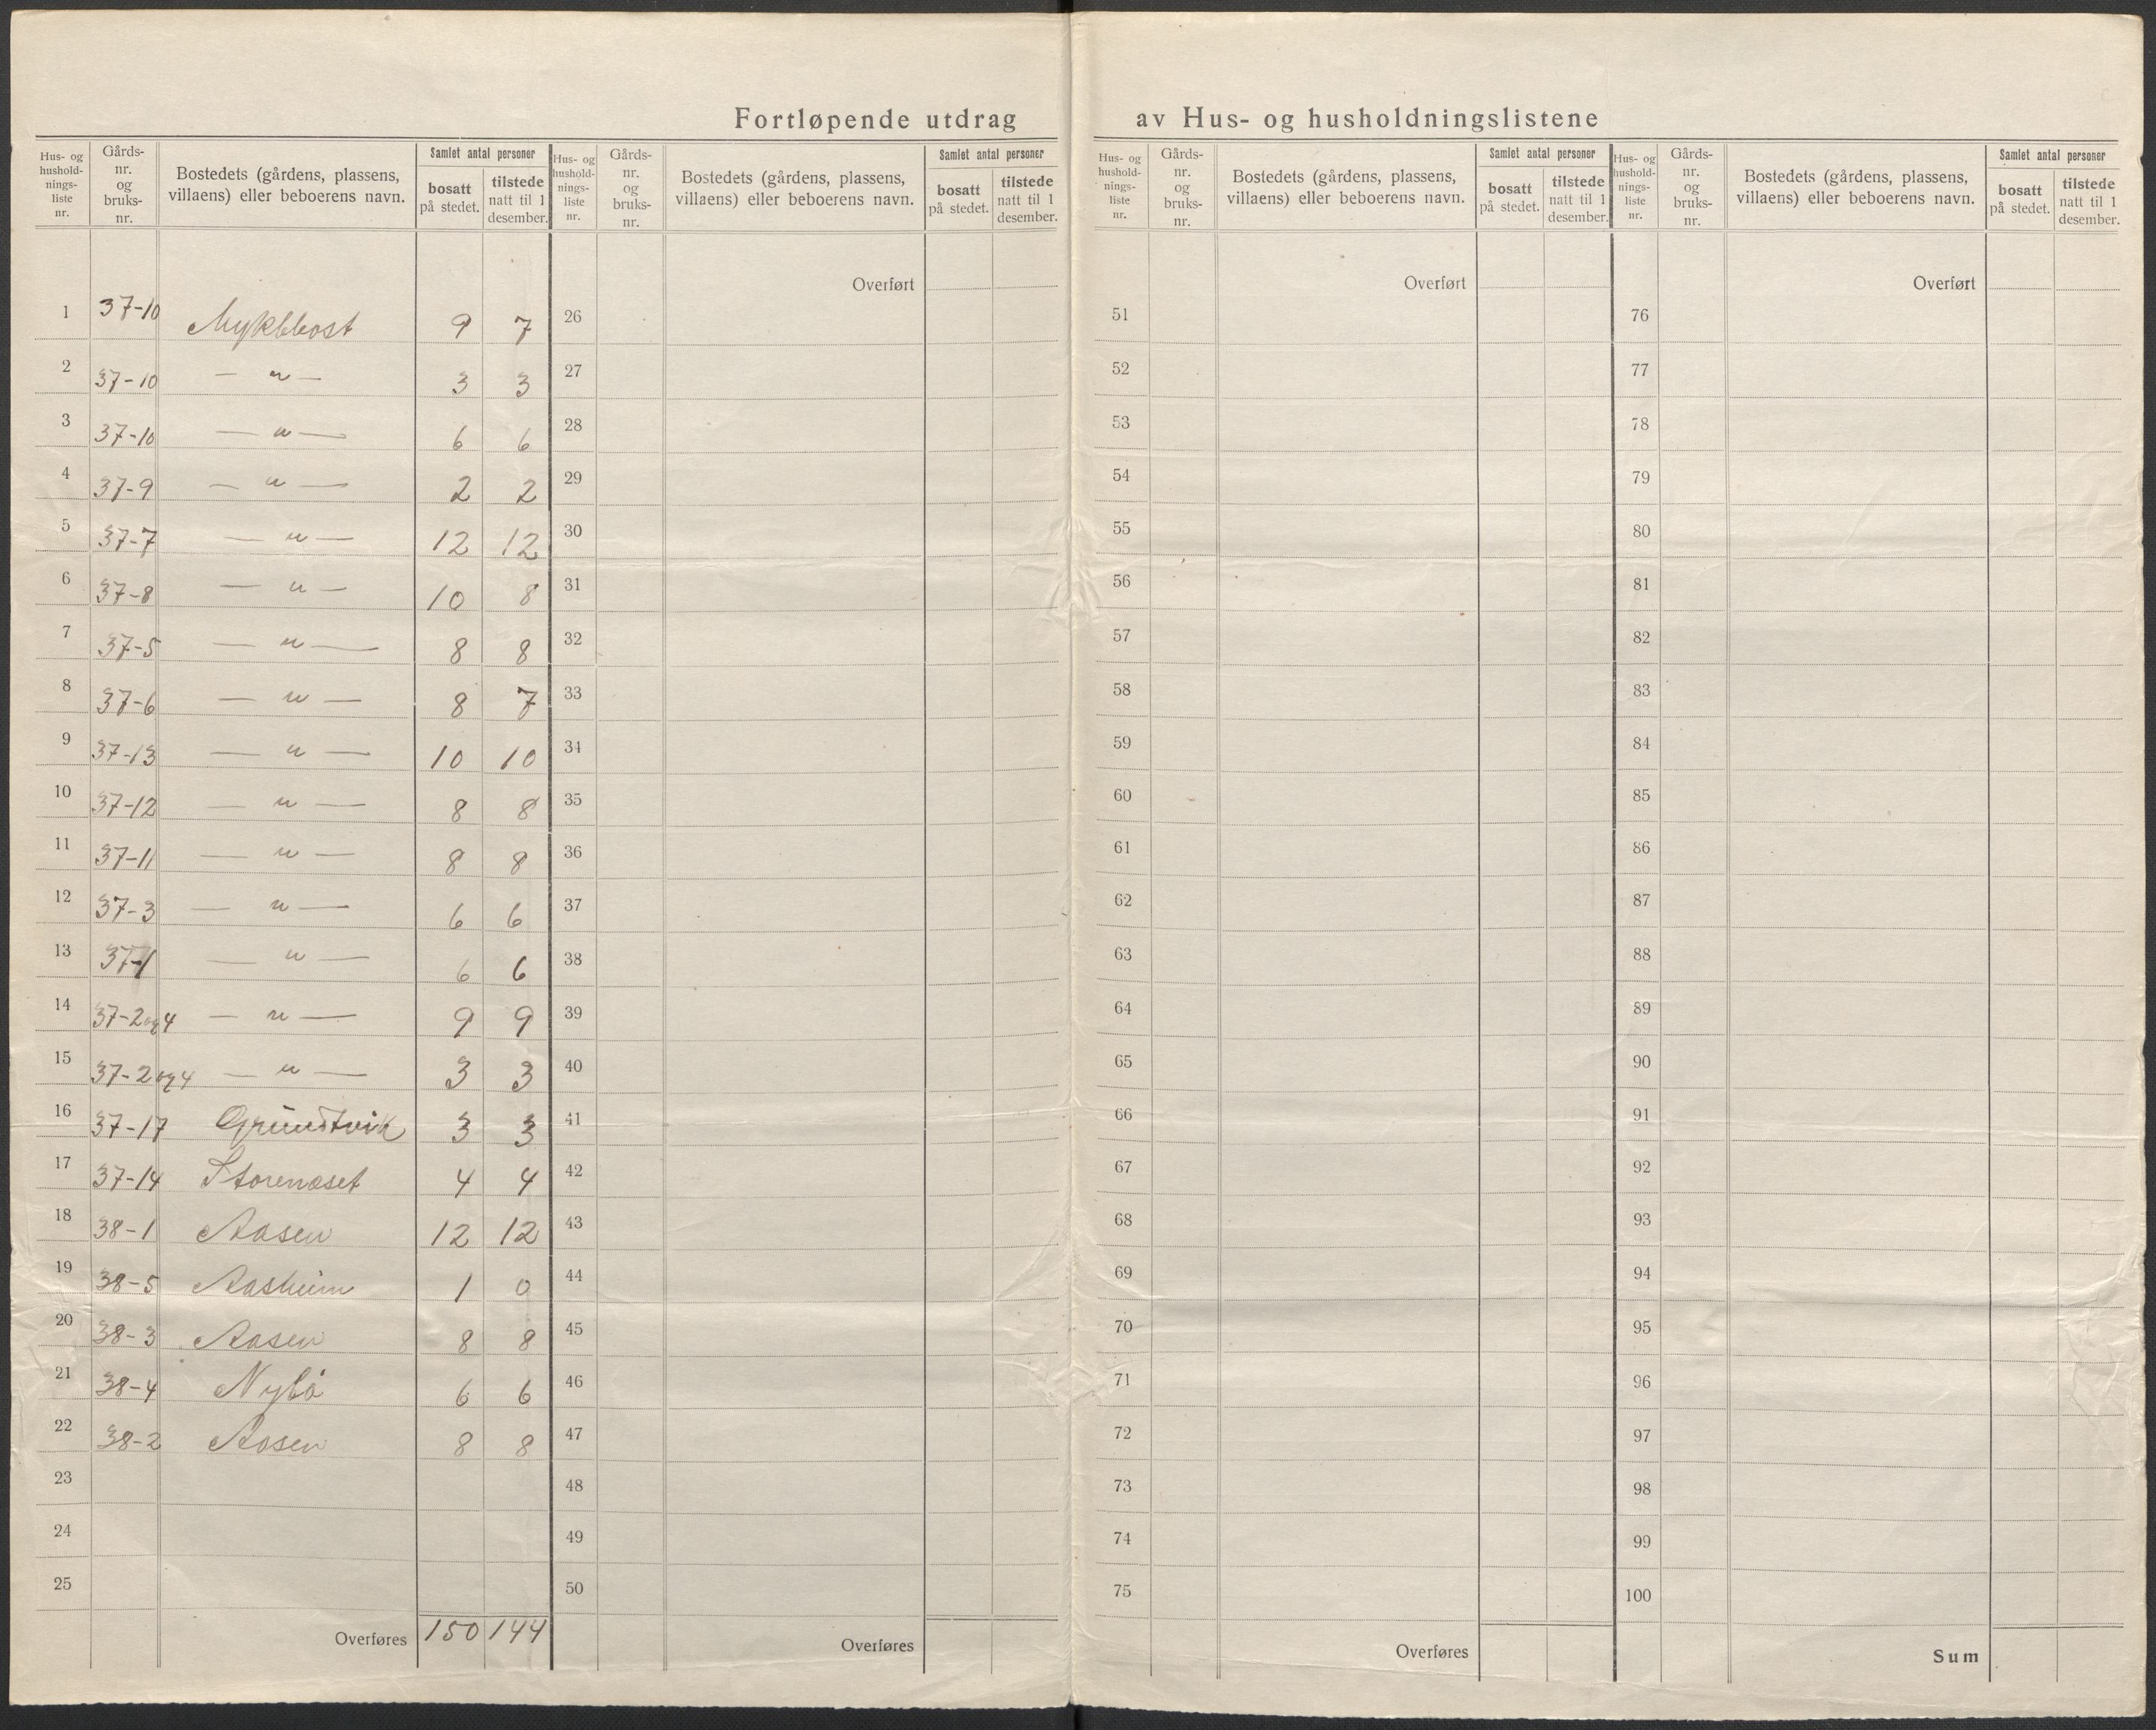 Fortløpende utdrag av Hus- og husholdningslistene
Hus- og husholdnings-liste nr. Gårds-nr. og bruks-nr. Bostedets (gårdens, plassens, villaens) eller beboerens navn. Samlet antal personer bosatt på stedet. tilstede natt til 1 desember.
1 37-10 Mykkbost 9 7
2 37-10 — " — 3 3
3 37-10 — " — 6 6
4 37-9 — " — 2 2
5 37-7 — " — 12 12
6 37-8 — " — 10 8
7 37-5 — " — 8 8
8 37-6 — " — 8 7
9 37-13 — " — 10 10
10 37-12 — " — 8 8
11 37-11 — " — 8 8
12 37-3 — " — 6 6
13 37-1 — " — 6 6
14 37-2 og 4 — " — 9 9
15 37-2 og 4 — " — 3 3
16 37-17 Grundtvik 3 3
17 37-14 Storeneset 4 4
18 38-1 Aasen 12 12
19 38-5 Aasheim 1 0
20 38-3 Aasen 8 8
21 38-4 Nybö 6 6
22 38-2 Aasen 8 8
23
24
25
Overføres 150 144
Hus- og husholdnings-liste nr. Gårds-nr. og bruks-nr. Bostedets (gårdens, plassens, villaens) eller beboerens navn. Samlet antal personer bosatt på stedet. tilstede natt til 1 desember.
Overført
26
27
28
29
30
31
32
33
34
35
36
37
38
39
40
41
42
43
44
45
46
47
48
49
50
Overføres
Hus- og husholdnings-liste nr. Gårds-nr. og bruks-nr. Bostedets (gårdens, plassens, villaens) eller beboerens navn. Samlet antal personer bosatt på stedet. tilstede natt til 1 desember.
Overført
51
52
53
54
55
56
57
58
59
60
61
62
63
64
65
66
67
68
69
70
71
72
73
74
75
Overføres
Hus- og husholdnings-liste nr. Gårds-nr. og bruks-nr. Bostedets (gårdens, plassens, villaens) eller beboerens navn. Samlet antal personer bosatt på stedet. tilstede natt til 1 desember.
Overført
76
77
78
79
80
81
82
83
84
85
86
87
88
89
90
91
92
93
94
95
96
97
98
99
100
Sum